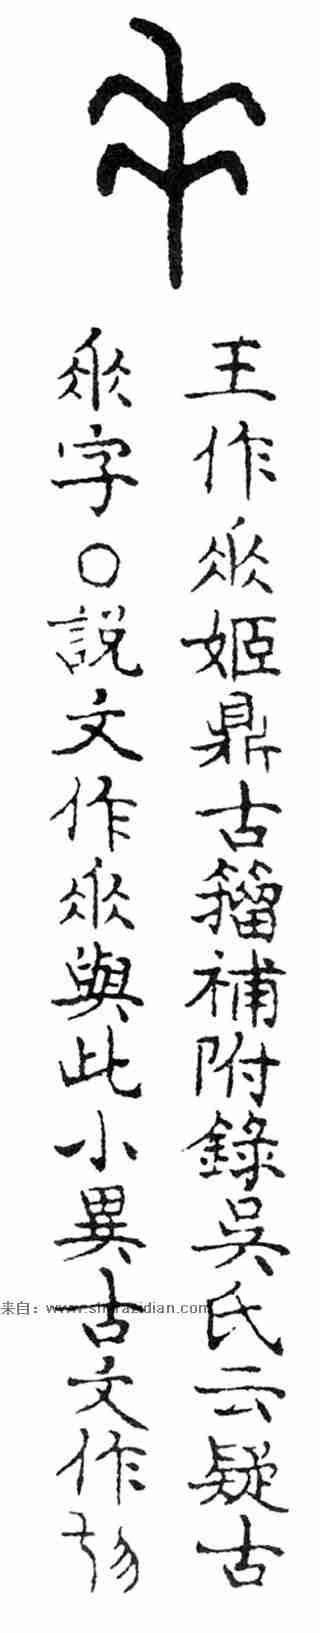 王作𠂹姬鼎古籀補附錄吳氏云疑古
𠂹字○說文作𠂹與此小異古文作
来自：www.shufazidian.com